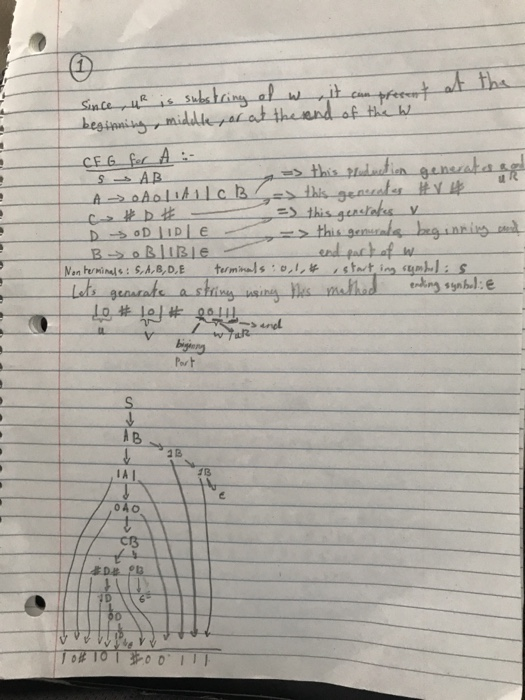 1
Since, uᴿ is substring of w, it can present at the
beginning, middle, or at the end of the W
CFG for A :-
S → AB
A → 0A0 | 1A1 | CB => this production generates u and uᴿ
C → # D # => this generates # V #
D → 0D | 1D | e => this generates v
B → 0B | 1B | e => this generates beginning and
end part of w
Non terminals: S, A, B, D, E terminals: 0, 1, #, starting symbol: S
Lets genarate a string using this method ending symbol: e
10 # 101 # 00111
u v w uᴿ → end
part
S
AB
1B
1A1 1B
e
0A0
CB
#D# 0B
1D e
0D
1D
e
1 0 # 1 0 1 # 0 0 1 1 1